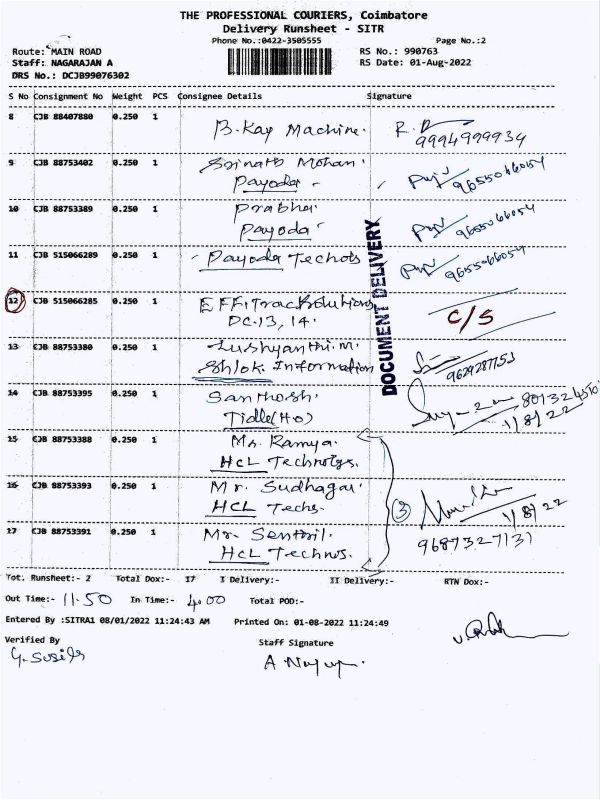 THE PROFESSIONAL COURIERS, Coimbatore
Delivery Runsheet - SITR
Phone No.:0422-3505555 Page No.:2
Route: MAIN ROAD RS No.: 990763
Staff: NAGARAJAN A RS Date: 01-Aug-2022
DRS No.: DCJB99076302
S No Consignment No Weight PCS Consignee Details Signature
8 CJB 88407880 0.250 1 B.Kay Machine. 9994999934
9 CJB 88753402 0.250 1 Srinath Mohan. 9655066054
Payoda
10 CJB 88753389 0.250 1 Prabha. 9655066054
Payoda
11 CJB 515066289 0.250 1 Payoda Techols 9655066054
12 CJB 515066285 0.250 1 EFFiTrac Solutions C/S
DC.13, 14.
13 CJB 88753380 0.250 1 Lushyanthi.M.
Shlok Information 9629287753
14 CJB 88753395 0.250 1 Santhosh.
Tidle(Ho) 1/8/22
15 CJB 88753388 0.250 1 Ms. Ramya.
HCL Technolgs.
16 CJB 88753393 0.250 1 Mr. Sudhagar 3
HCL Techs. 1/8/22
17 CJB 88753391 0.250 1 Mr. Senthil. 9687327131
HCL Technos.
DOCUMENT DELIVERY
Tot. Runsheet:- 2 Total Dox:- 17 I Delivery:- II Delivery:- RTN Dox:-
Out Time:- 11.50 In Time:- 4.00 Total POD:-
Entered By :SITRA1 08/01/2022 11:24:43 AM Printed On: 01-08-2022 11:24:49
Verified By Staff Signature
G. Susila